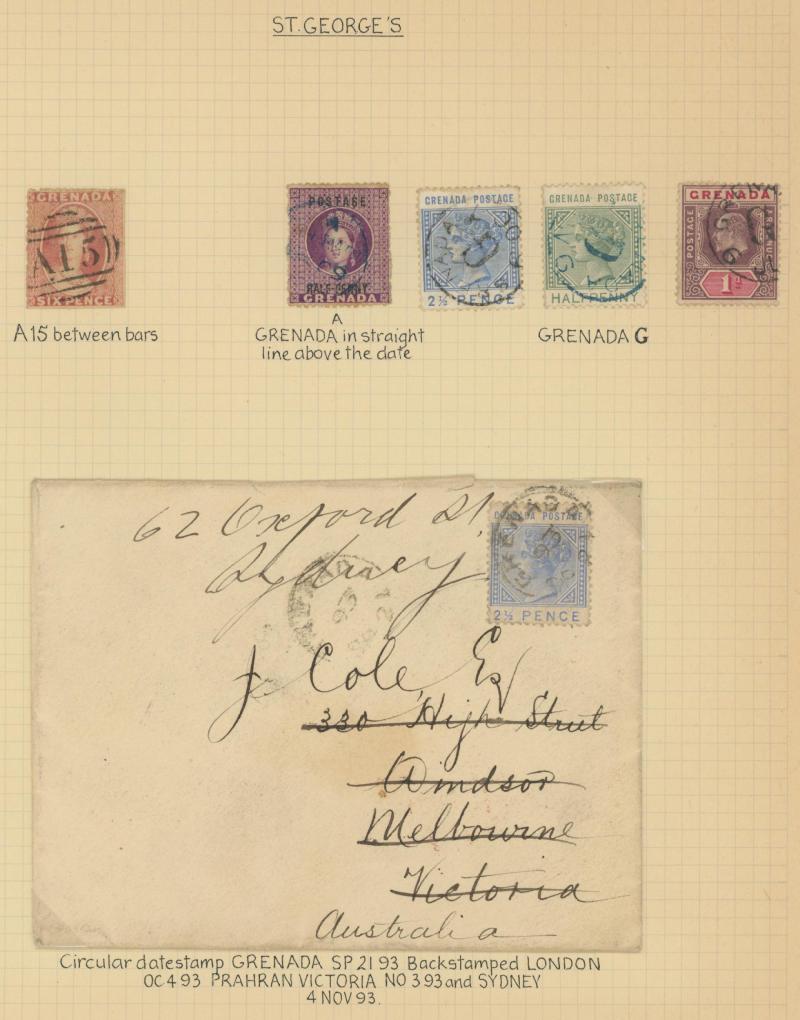 ST. GEORGE'S
GRENADA
A15
SIX PENCE
POSTAGE
HALF-PENNY
GRENADA
GRENADA POSTAGE
2½ PENCE
GRENADA POSTAGE
HALFPENNY
GRENADA
POSTAGE
1d
A15 between bars
A
GRENADA in straight
line above the date
GRENADA G
62 Oxford St.
Sydney
GRENADA POSTAGE
2½ PENCE
J. Cole, Esq
330 High Street
Windsor
Melbourne
Victoria
Australia
Circular datestamp GRENADA SP 21 93 Backstamped LONDON
OC 4 93 PRAHRAN VICTORIA NO 3 93 and SYDNEY
4 NOV 93.